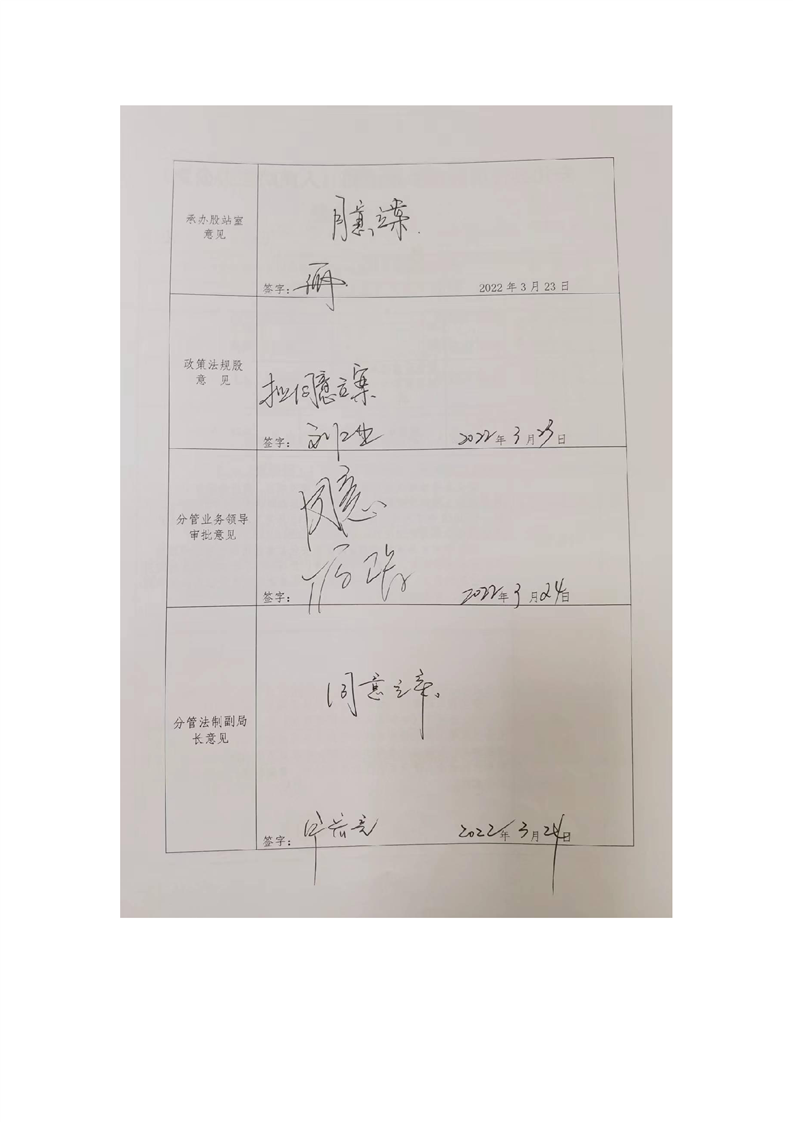 承办股站室
意见
同意立案.
签字:
2022年3月23日
政策法规股
意 见
拟同意立案
签字:
2022年3月23日
分管业务领导
审批意见
同意
签字:
2022年3月24日
分管法制副局
长意见
同意立案。
签字:
2022年3月24日